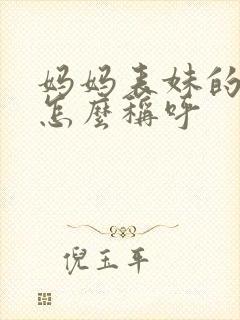 妈妈表妹的
怎麼稱呼
倪玉平